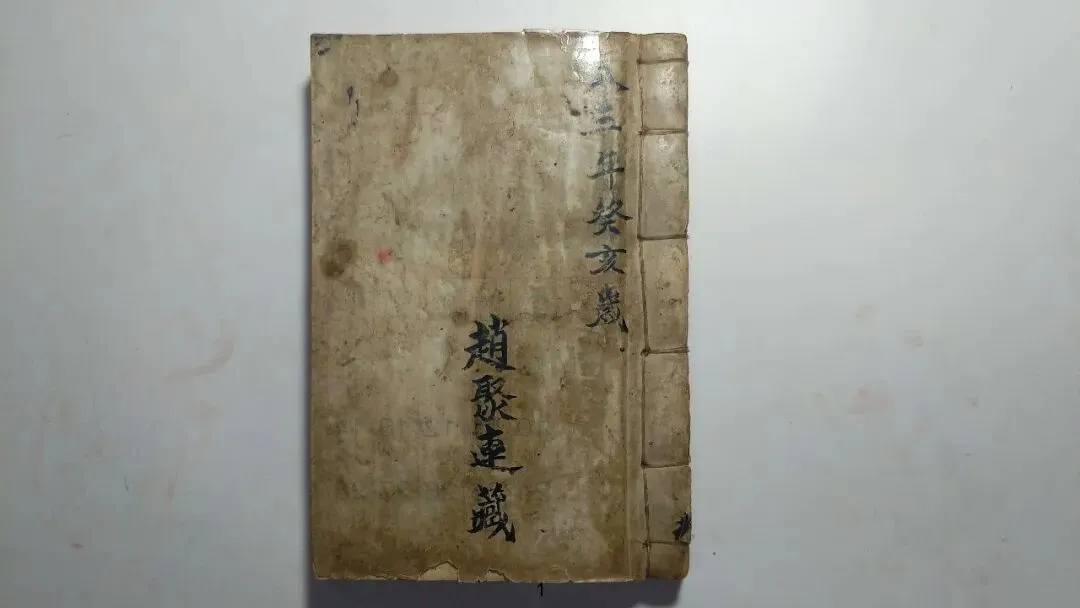 八三年癸亥歲
趙聚連藏
1